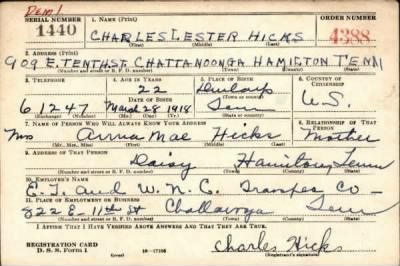 Dem!
SERIAL NUMBER 1. NAME (Print) ORDER NUMBER
1440 CHARLES LESTER HICKS 4388
(First) (Middle) (Last)
2. ADDRESS (Print)
909 E. TENTH ST CHATTANOONGA HAMILTON TENN
(Number and street or R. F. D. number) (Town) (County) (State)
3. TELEPHONE 4. AGE IN YEARS 5. PLACE OF BIRTH 6. COUNTRY OF CITIZENSHIP
22 Dunlap
DATE OF BIRTH (Town or county)
61247 March 28 1918 Tenn U.S.
(Exchange) (Number) (Mo.) (Day) (Yr.) (State or country)
7. NAME OF PERSON WHO WILL ALWAYS KNOW YOUR ADDRESS 8. RELATIONSHIP OF THAT PERSON
Mrs Anna Mae Hicks Mother
(Mr., Mrs., Miss) (First) (Middle) (Last)
9. ADDRESS OF THAT PERSON
Daisy Hamilton, Tenn
(Number and street or R. F. D. number) (Town) (County) (State)
10. EMPLOYER'S NAME
E. T. and W. N. C. Transper Co
11. PLACE OF EMPLOYMENT OR BUSINESS
822 E-11th St Tenn
(Number and street or R. F. D. number) (Town) (County) (State)
I AFFIRM THAT I HAVE VERIFIED ABOVE ANSWERS AND THAT THEY ARE TRUE.
REGISTRATION CARD
D. S. S. Form 1 Charles Hicks
(Registrant's signature)